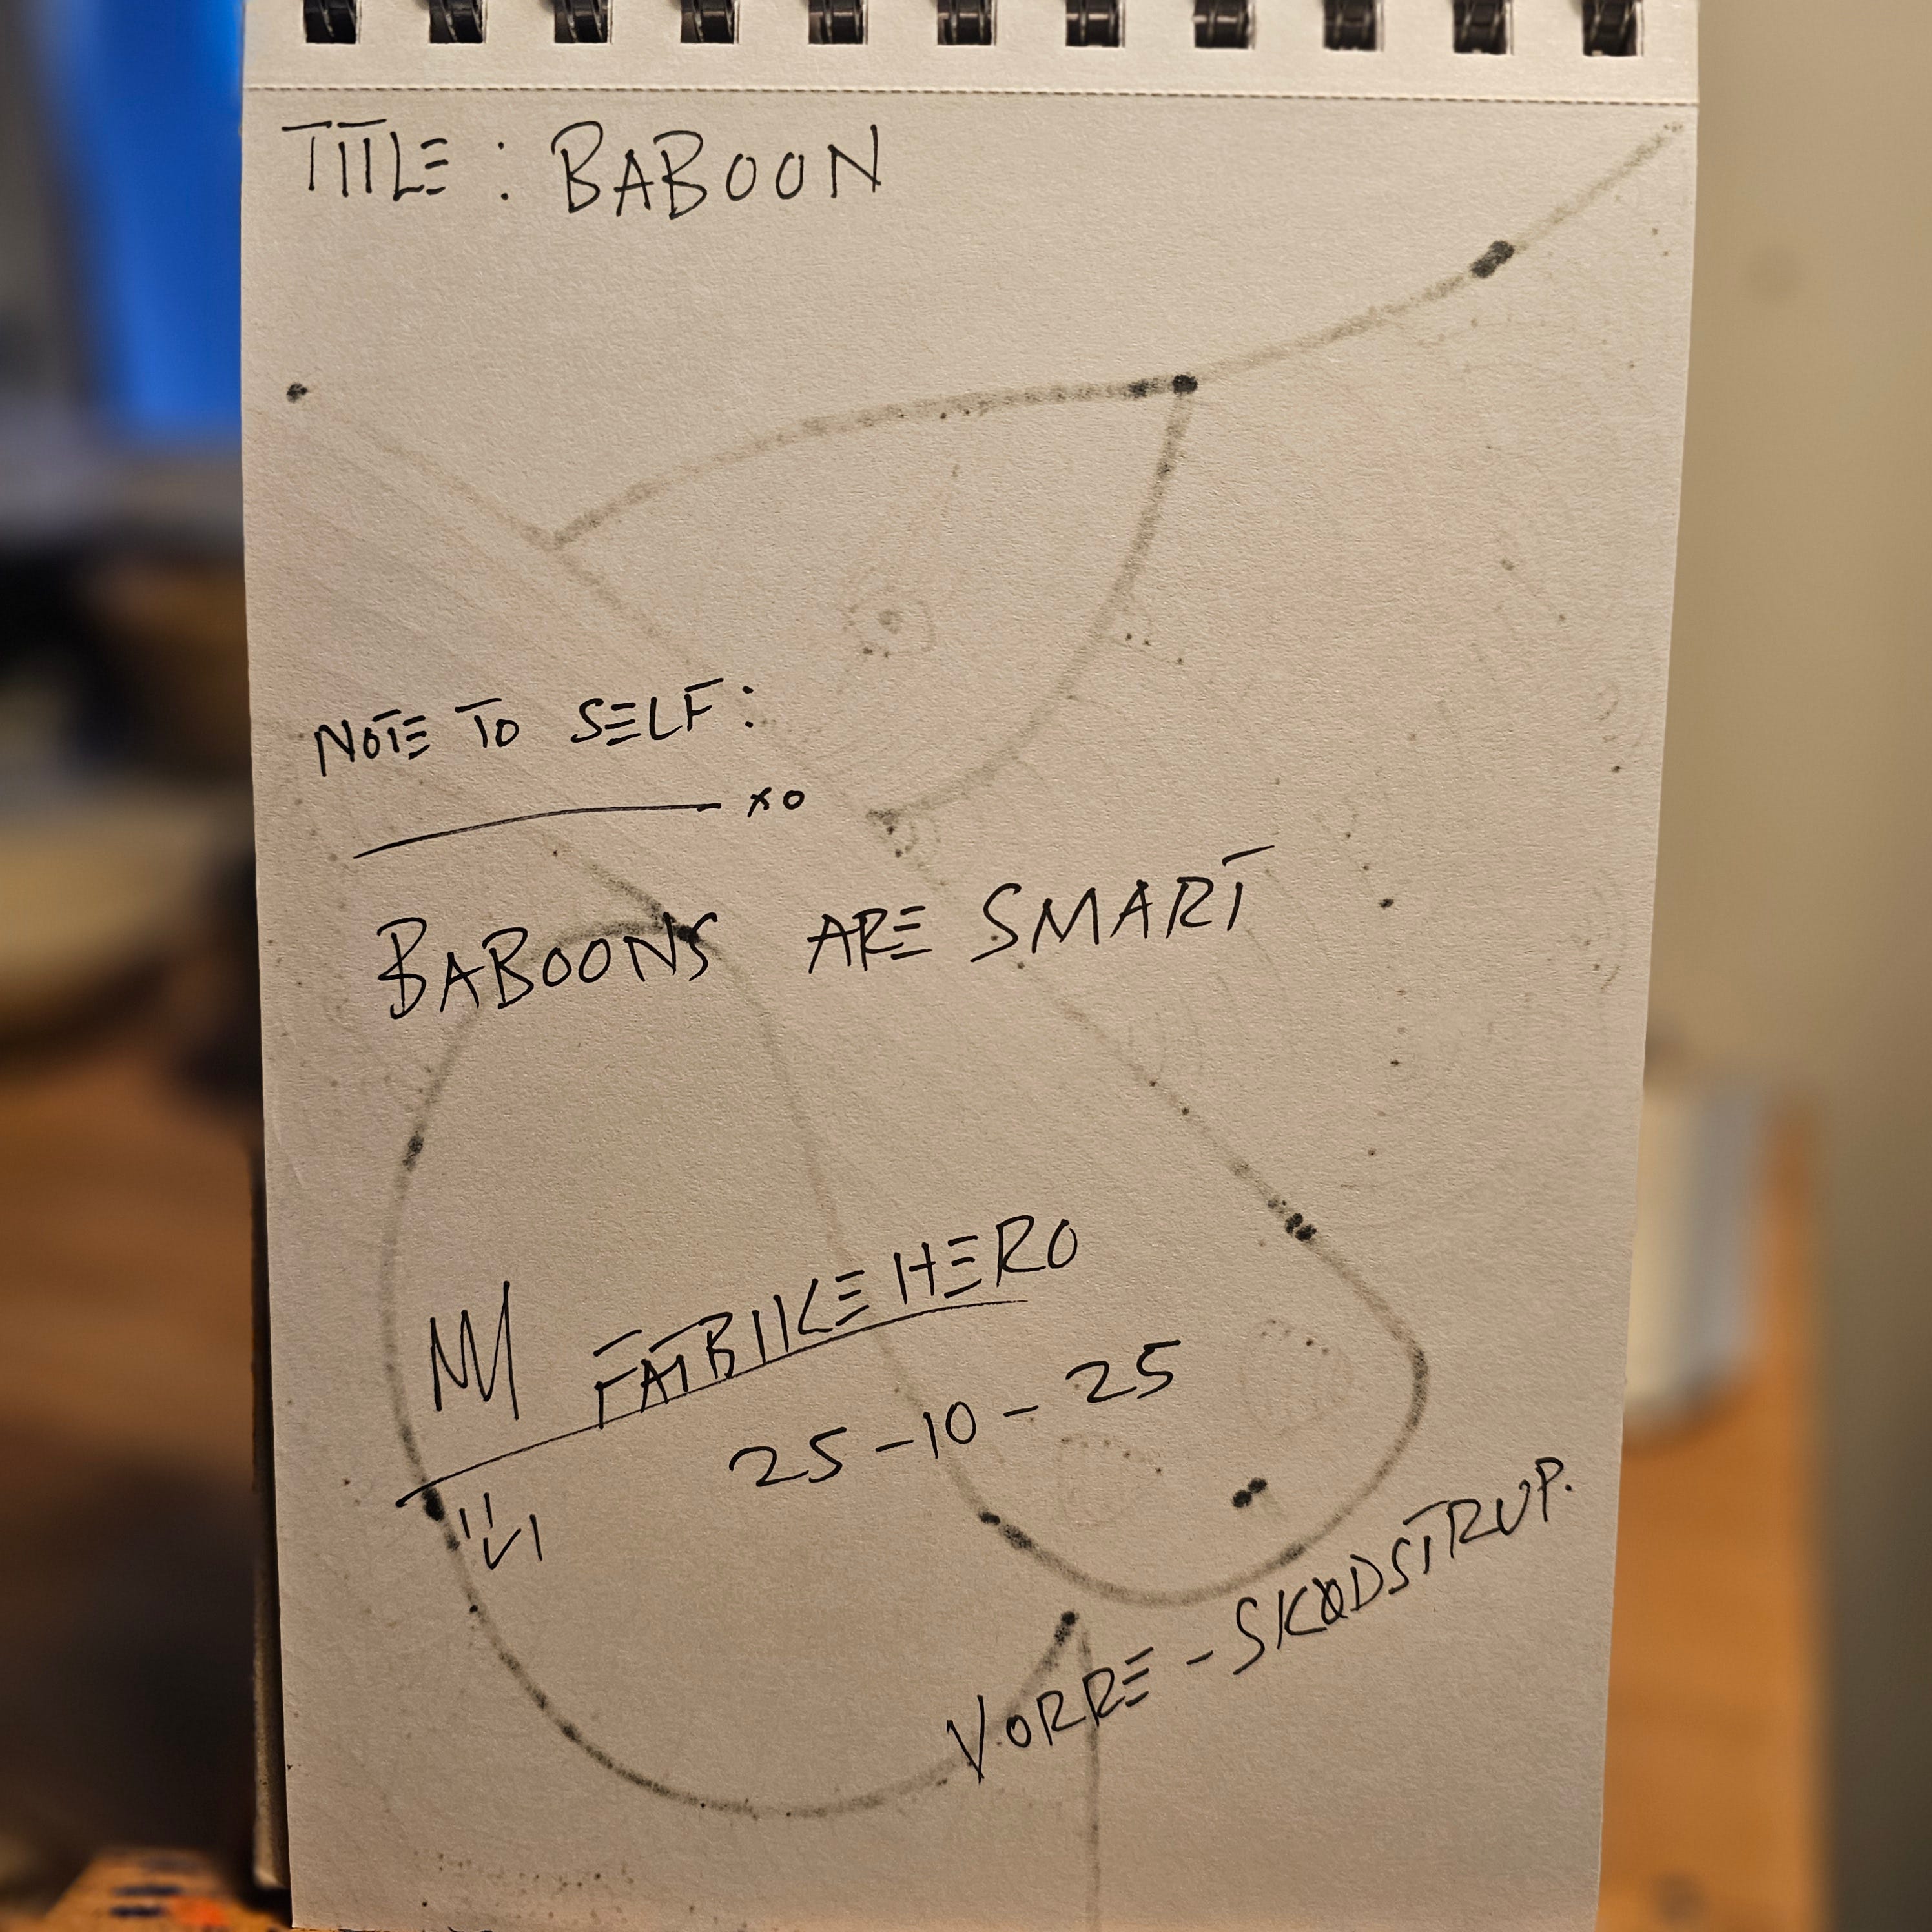 TITLE: BABOON
NOTE TO SELF:
xo
BABOONS ARE SMART
FATBIKEHERO
25-10-25
VORRE-SKØDSTRUP.